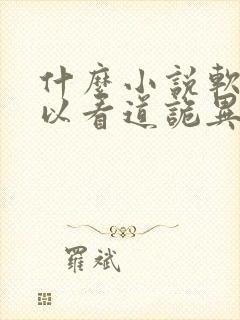 什麼小說軟
以看道詭異
羅斌